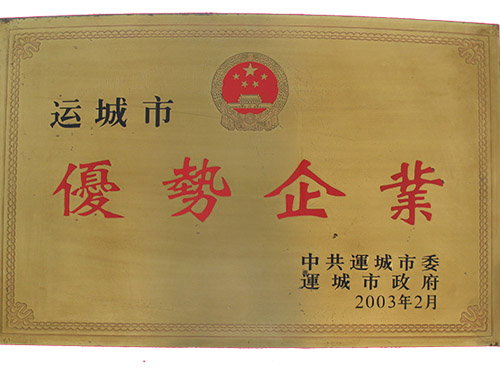 运城市
優勢企業
中共運城市委
運城市政府
2003年2月